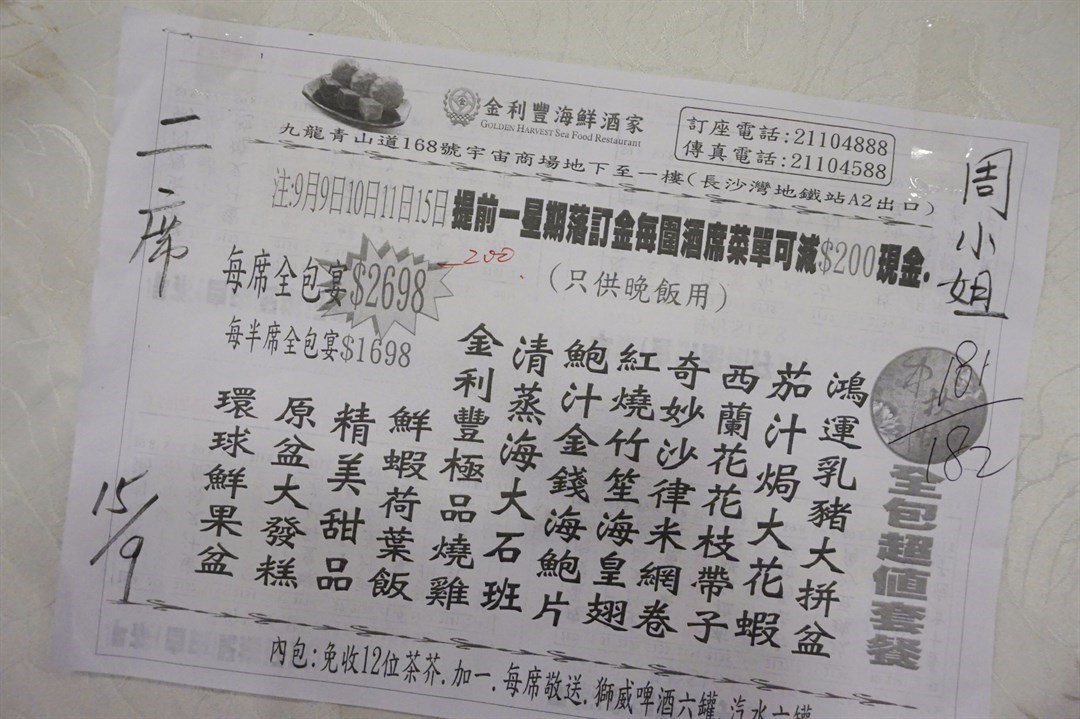 金利豐海鮮酒家
GOLDEN HARVEST Sea Food Restaurant
訂座電話:21104888
傳真電話:21104588
九龍青山道168號宇宙商場地下至一樓(長沙灣地鐵站A2出口)
二席
周小姐
注:9月9日10日11日15日提前一星期落訂金每圍酒席菜單可減$200現金.
每席全包宴$2698
-200
(只供晚飯用)
每半席全包宴$1698
181/182
全包超值套餐
鴻運乳豬大拼盆
茄汁焗大花蝦
西蘭花花枝帶子
奇妙沙律米網卷
紅燒竹笙海皇翅
鮑汁金錢海鮑片
清蒸海大石班
金利豐極品燒雞
鮮蝦荷葉飯
精美甜品
原盆大發糕
環球鮮果盆
15/9
內包:免收12位茶芥.加一.每席敬送.獅威啤酒六罐.汽水六罐